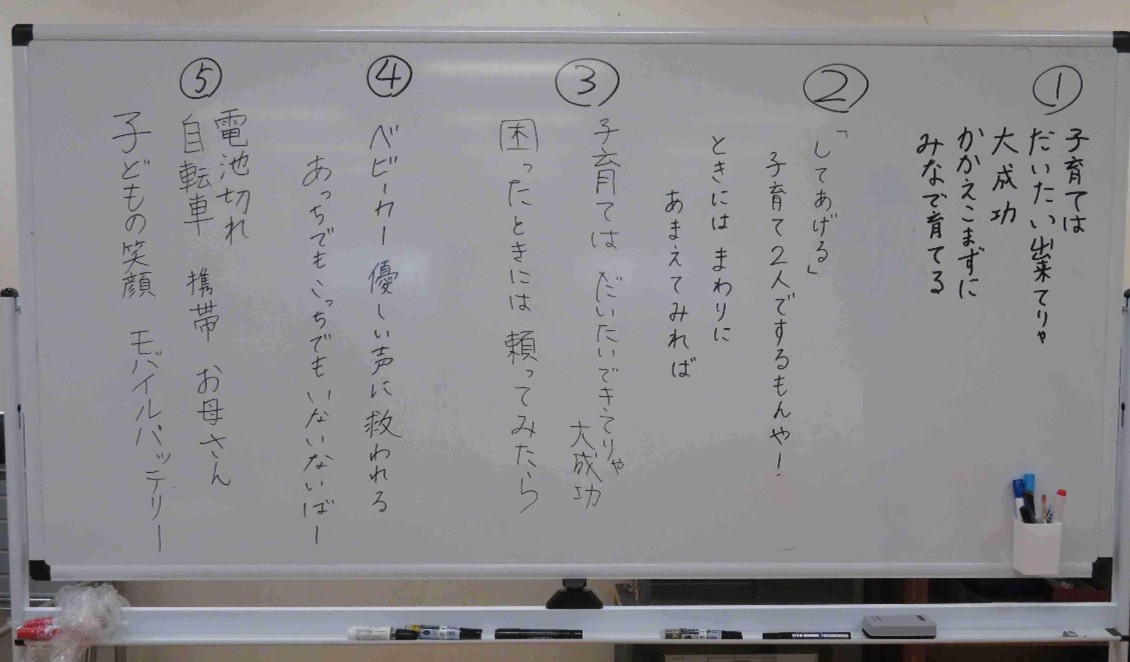 ①
子育ては
だいたい出来てりゃ
大成功
かかえこまずに
みなで育てる
②
「してあげる」
子育て2人でするもんや！
ときには まわりに
あまえてみれば
③
子育ては だいたいできてりゃ
大成功
困ったときには 頼ってみたら
④
ベビーカー 優しい声に救われる
あっちでもこっちでも いないないばー
⑤
電池切れ
自転車 携帯 お母さん
子どもの笑顔 モバイルバッテリー